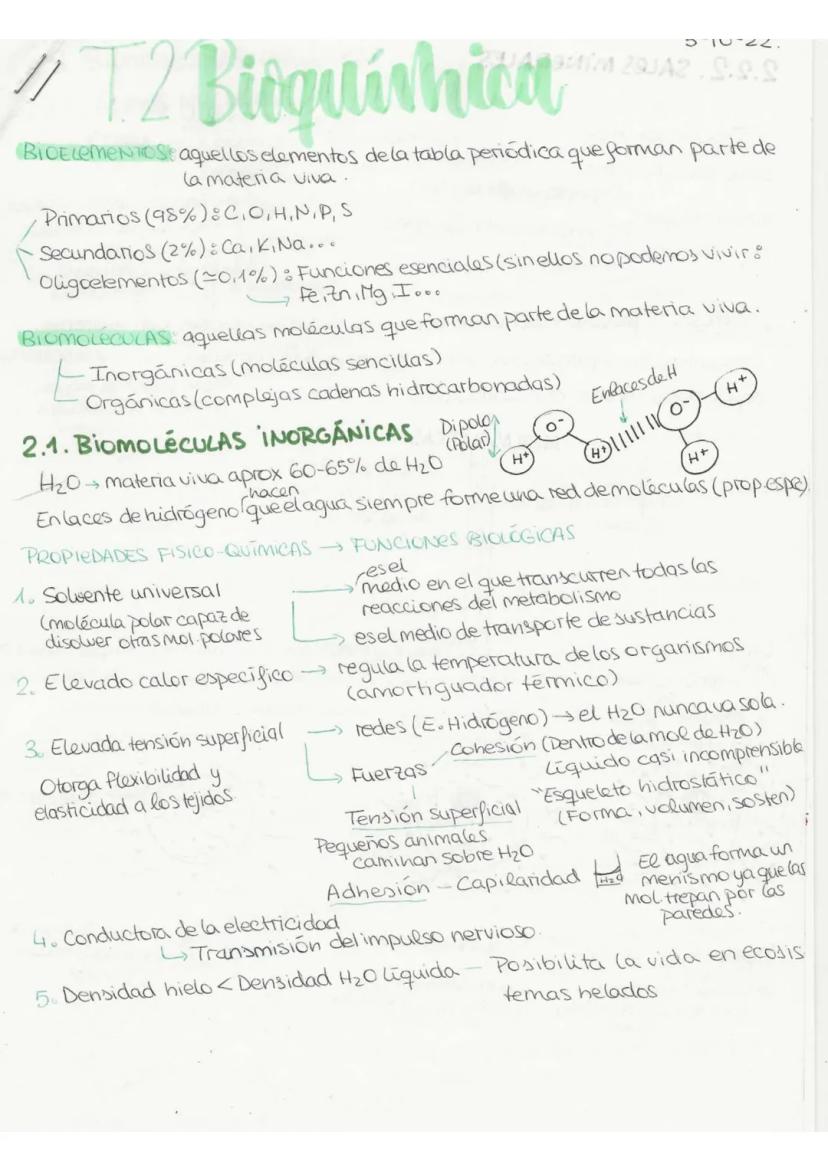 5-10-22.
T.2 Bioquímica
BIOELEMENTOS: aquellos elementos de la tabla periódica que forman parte de
la materia viva.
Primarios (98%): C, O, H, N, P, S
Secundarios (2%): Ca, K, Na...
Oligoelementos (≃0,1%): Funciones esenciales (sin ellos no podemos vivir:
→ Fe, Zn, Mg, I...
BIOMOLÉCULAS: aquellas moléculas que forman parte de la materia viva.
Inorgánicas (moléculas sencillas)
Orgánicas (complejas cadenas hidrocarbonadas)
Enlaces de H
2.1. BIOMOLÉCULAS INORGÁNICAS
Dipolo
(Polar)
H+ O- H+ O- H+ H+
H2O → materia viva aprox 60-65% de H2O
Enlaces de hidrógeno hacen que el agua siempre forme una red de moléculas (prop.espe).
PROPIEDADES FISICO-QUÍMICAS → FUNCIONES BIOLÓGICAS
1. Solvente universal
(molécula polar capaz de
disolver otras mol. polares
→ es el medio en el que transcurren todas las
reacciones del metabolismo
→ es el medio de transporte de sustancias
2. Elevado calor específico → regula la temperatura de los organismos
(amortiguador térmico)
3. Elevada tensión superficial
Otorga flexibilidad y
elasticidad a los tejidos.
→ redes (E. Hidrógeno) → el H2O nunca va sola.
→ Fuerzas
Cohesión (Dentro de la mol de H2O)
Líquido casi incomprensible
"Esqueleto hidrostático"
(Forma, volumen, sosten)
Tensión superficial
Pequeños animales
caminan sobre H2O
Adhesión - Capilaridad
H2O
El agua forma un
menismo ya que las
mol trepan por las
paredes.
4. Conductora de la electricidad
↳ Transmisión del impulso nervioso.
5. Densidad hielo < Densidad H2O líquida - Posibilita la vida en ecosis
temas helados